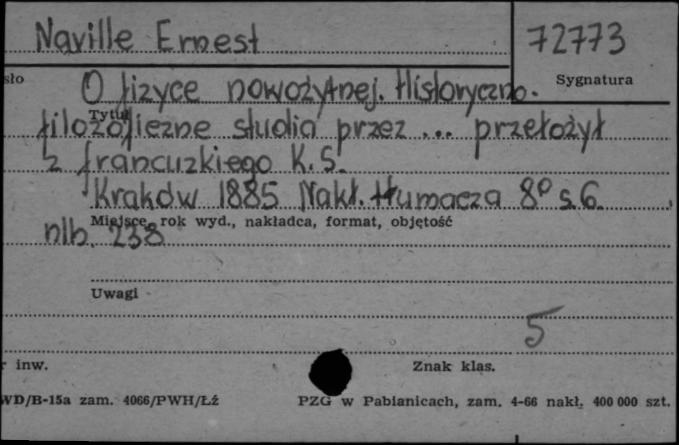 Naville Ernest 72773
sło Sygnatura
O fizyce nowożytnej. Historyczno-
Tytuł
filozoficzne studia przez ... przełożył
z francuzkiego K.S.
Kraków 1885 Nakł. tłumacza 8° s.6
Miejsce, rok wyd., nakładca, format, objętość
nlb. 238
Uwagi
5
r inw. Znak klas.
WD/B-15a zam. 4066/PWH/Łź PZG w Pabianicach, zam. 4-66 nakł. 400 000 szt.